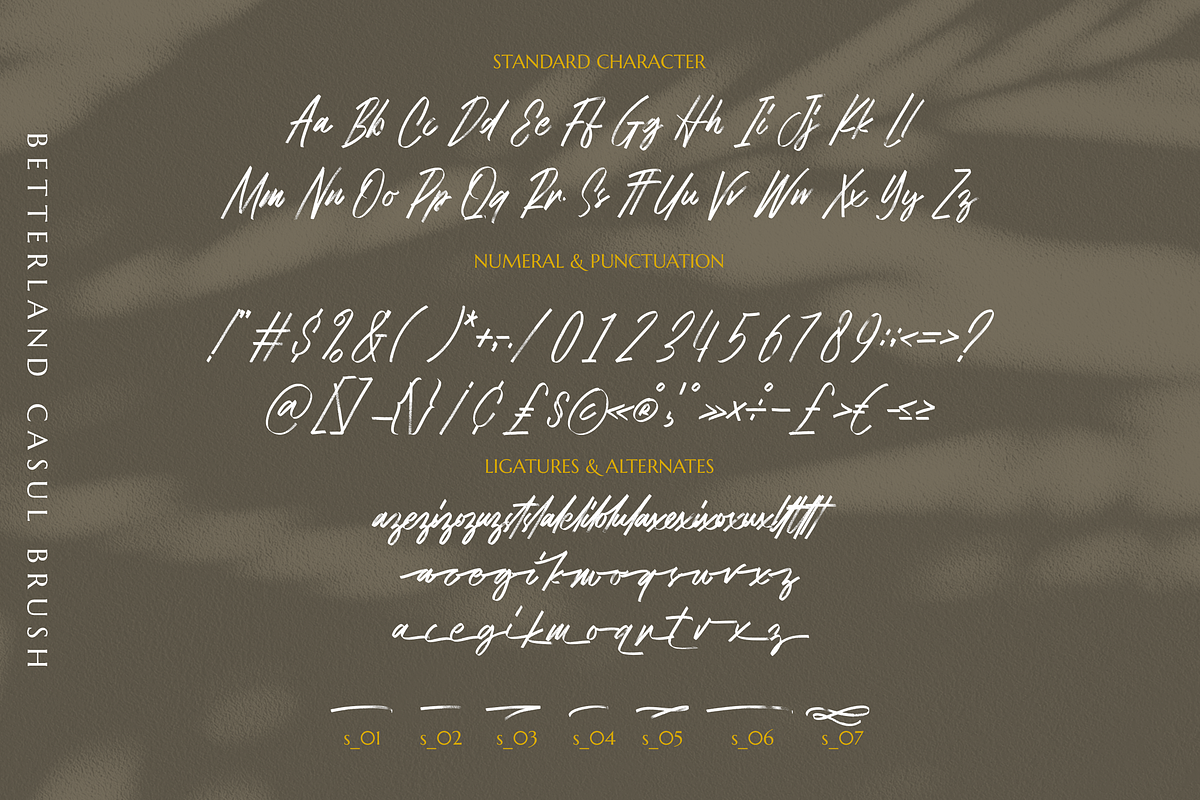 BETTERLAND CASUL BRUSH
STANDARD CHARACTER
Aa Bb Cc Dd Ee Ff Gg Hh Ii Jj Kk Ll
Mm Nn Oo Pp Qq Rr Ss Tt Uu Vv Ww Xx Yy Zz
NUMERAL & PUNCTUATION
!"#$%&( )*+,-./0123456789:;<=>?
@[\]_{|}/¢£$©«®°¸'°»x÷–£>€-≤≥
LIGATURES & ALTERNATES
acegikmoqrsuvxz
acegikmoqrtvxz
s_01 s_02 s_03 s_04 s_05 s_06 s_07